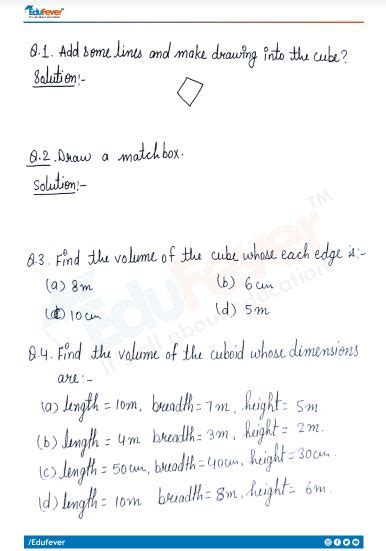 Edufever
Q.1. Add some lines and make drawing into the cube?
Solution:-
Q.2. Draw a matchbox.
Solution:-
Q.3. Find the volume of the cube whose each edge is:-
(a) 8m (b) 6cm
(c) 10cm (d) 5m
Q.4. Find the volume of the cuboid whose dimensions
are:-
(a) length = 10m, breadth = 7m, height = 5m
(b) length = 4m breadth = 3m, height = 2m.
(c) length = 50cm, breadth = 40cm, height = 30cm.
(d) length = 10m breadth = 8m, height = 6m.
EduFever™
It's all about education
/Edufever